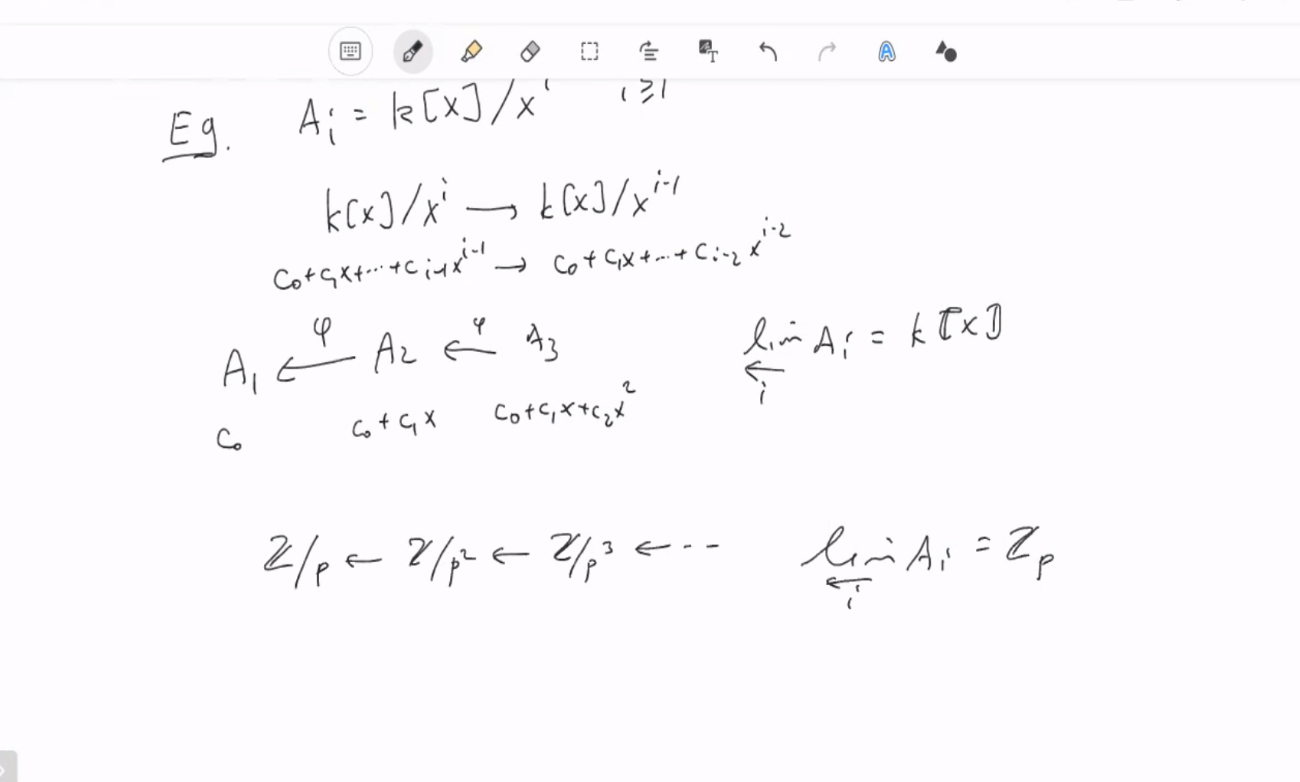 Eg. A_i = k[x]/x^i i ≥ 1
k[x]/x^i → k[x]/x^{i-1}
c_0+c_1x+···+c_{i-1}x^{i-1} → c_0+c_1x+...+c_{i-2}x^{i-2}
A_1 ←^φ A_2 ←^φ A_3 lim← _i A_i = k⟦x⟧
c_0 c_0+c_1x c_0+c_1x+c_2x^2
ℤ/p ← ℤ/p^2 ← ℤ/p^3 ← ··· lim← _i A_i = ℤ_p